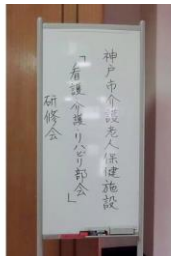 神戸市介護老人保健施設
「看護・介護・リハビリ部会」
研修会